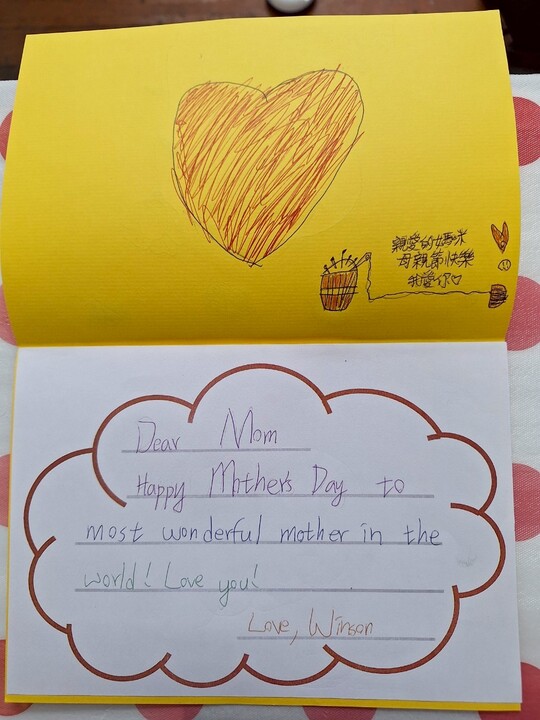 親愛的媽咪
母親節快樂
我愛你♡
Dear Mom
Happy Mother's Day to
most wonderful mother in the
world! Love you!
Love, Winson